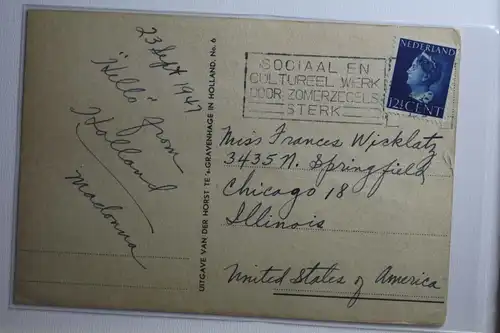 23 Sept 1947
"Hello" from
Holland
Madonna
UITGAVE VAN DER HORST TE 's-GRAVENHAGE IN HOLLAND, No. 6
SOCIAAL EN
CULTUREEL WERK
DOOR ZOMERZEGELS
STERK
NEDERLAND
12½ CENT
Miss Frances Wicklatz
3435 N. Springfield
Chicago 18
Illinois
United States of America